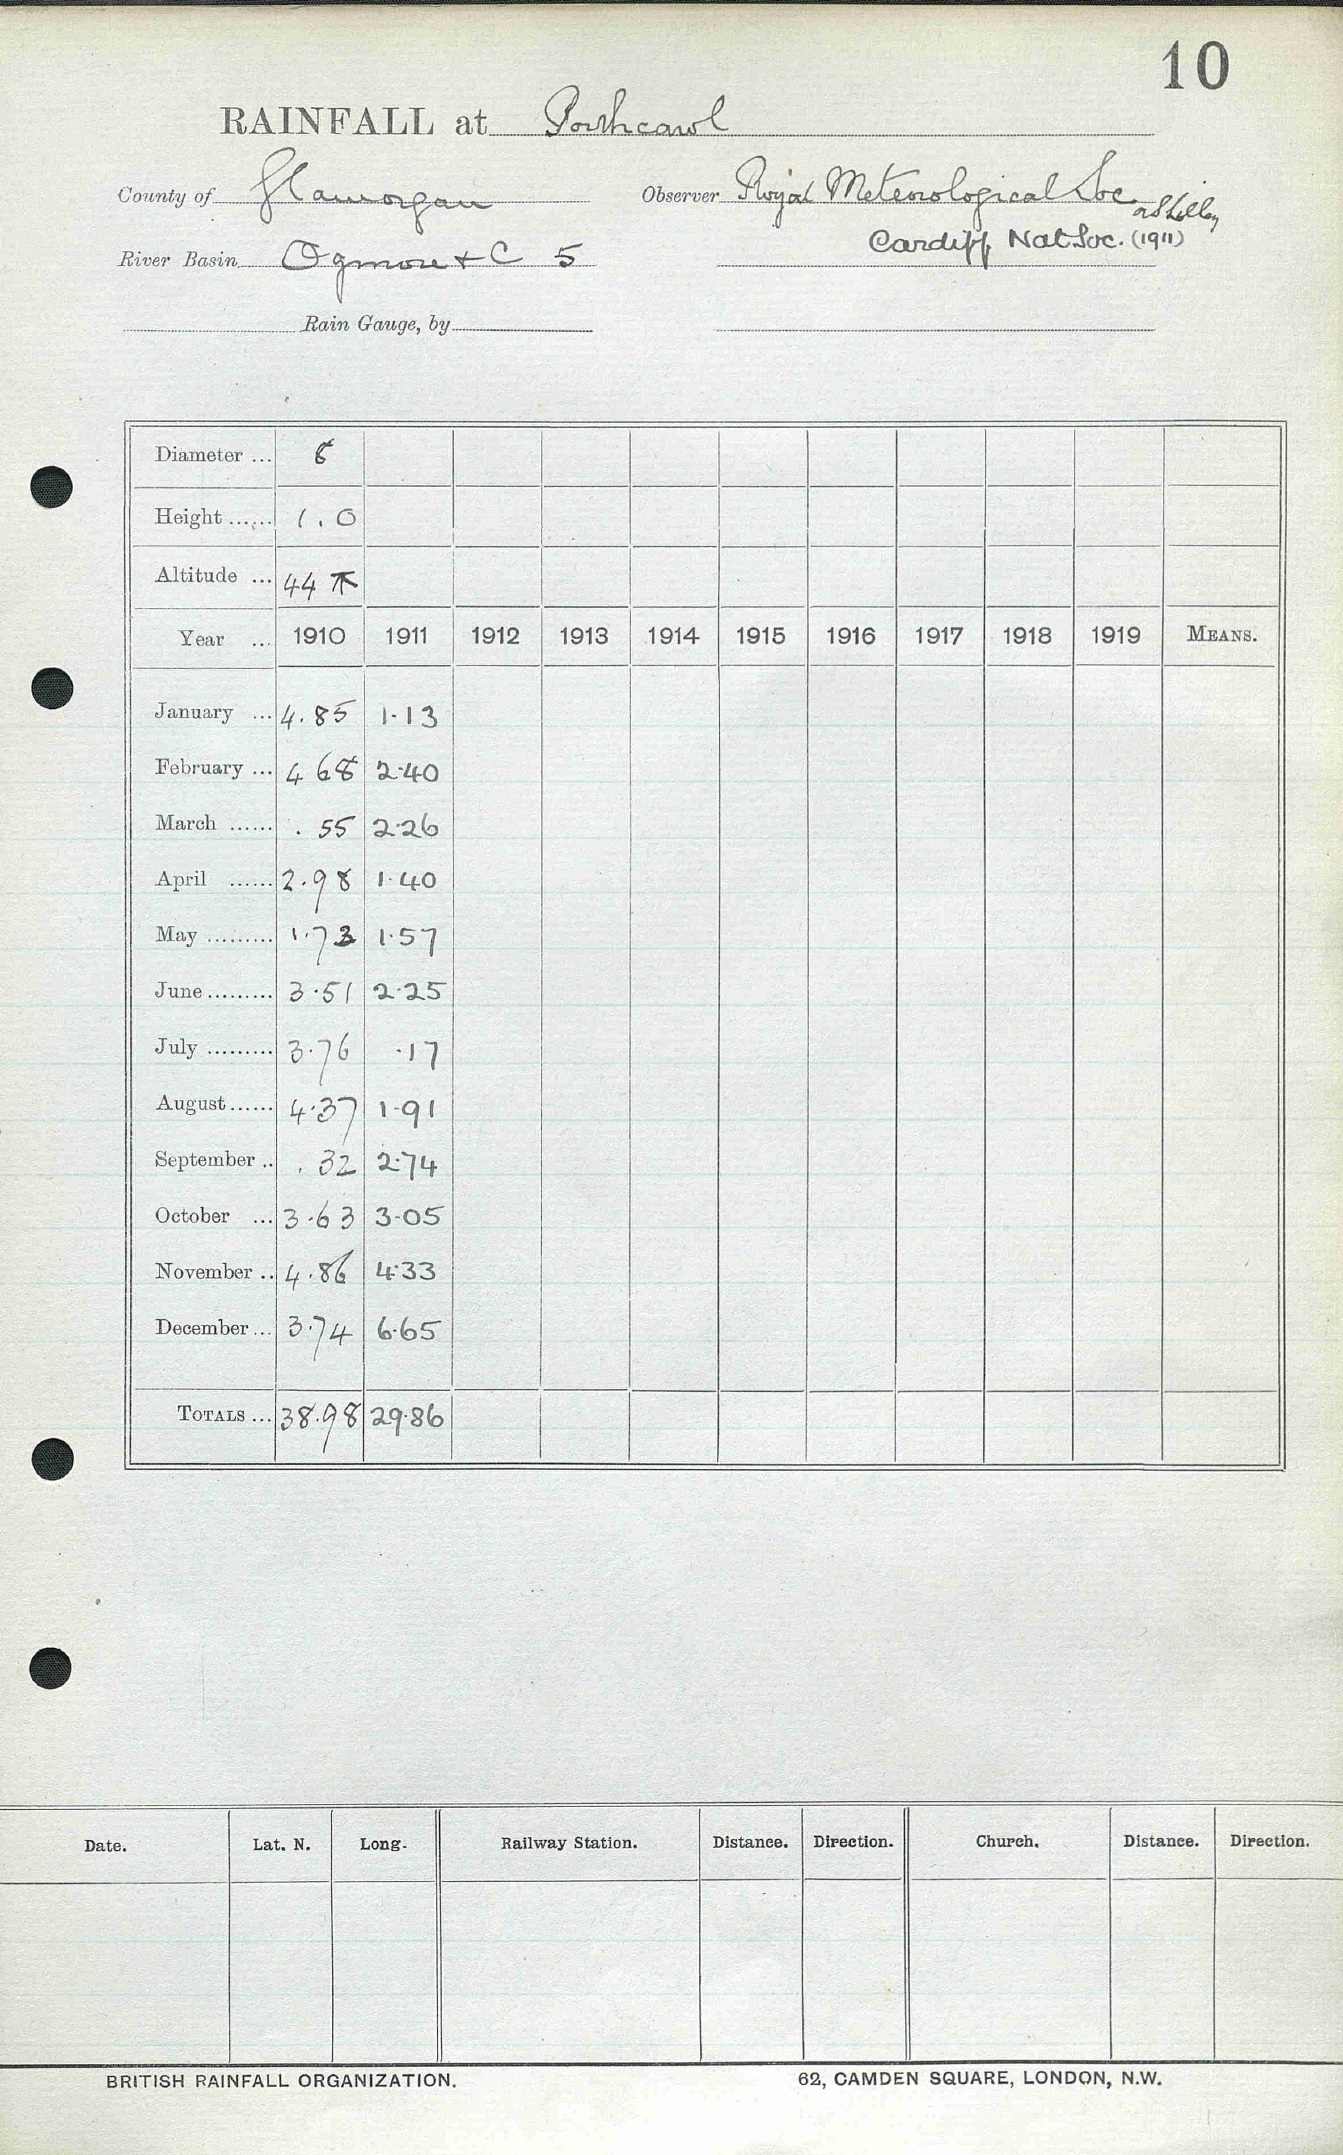 10
RAINFALL at Porthcawl
County of Glamorgan Observer Royal Meteorological Soc
River Basin Ogmore + C 5 Cardiff Nat Soc. (1911)
Rain Gauge, by
Diameter ... 8
Height ...... 1.0
Altitude ... 44
Year ... 1910 1911 1912 1913 1914 1915 1916 1917 1918 1919 MEANS.
January ... 4.85 1.13
February ... 4 68 2.40
March ...... .55 2.26
April ...... 2.98 1.40
May ......... 1.73 1.57
June ......... 3.51 2.25
July ......... 3.76 .17
August ...... 4.37 1.91
September .. .32 2.74
October ... 3.63 3.05
November .. 4.86 4.33
December ... 3.74 6.65
TOTALS ... 38.98 29.86
Date. Lat. N. Long. Railway Station. Distance. Direction. Church. Distance. Direction.
BRITISH RAINFALL ORGANIZATION. 62, CAMDEN SQUARE, LONDON, N.W.